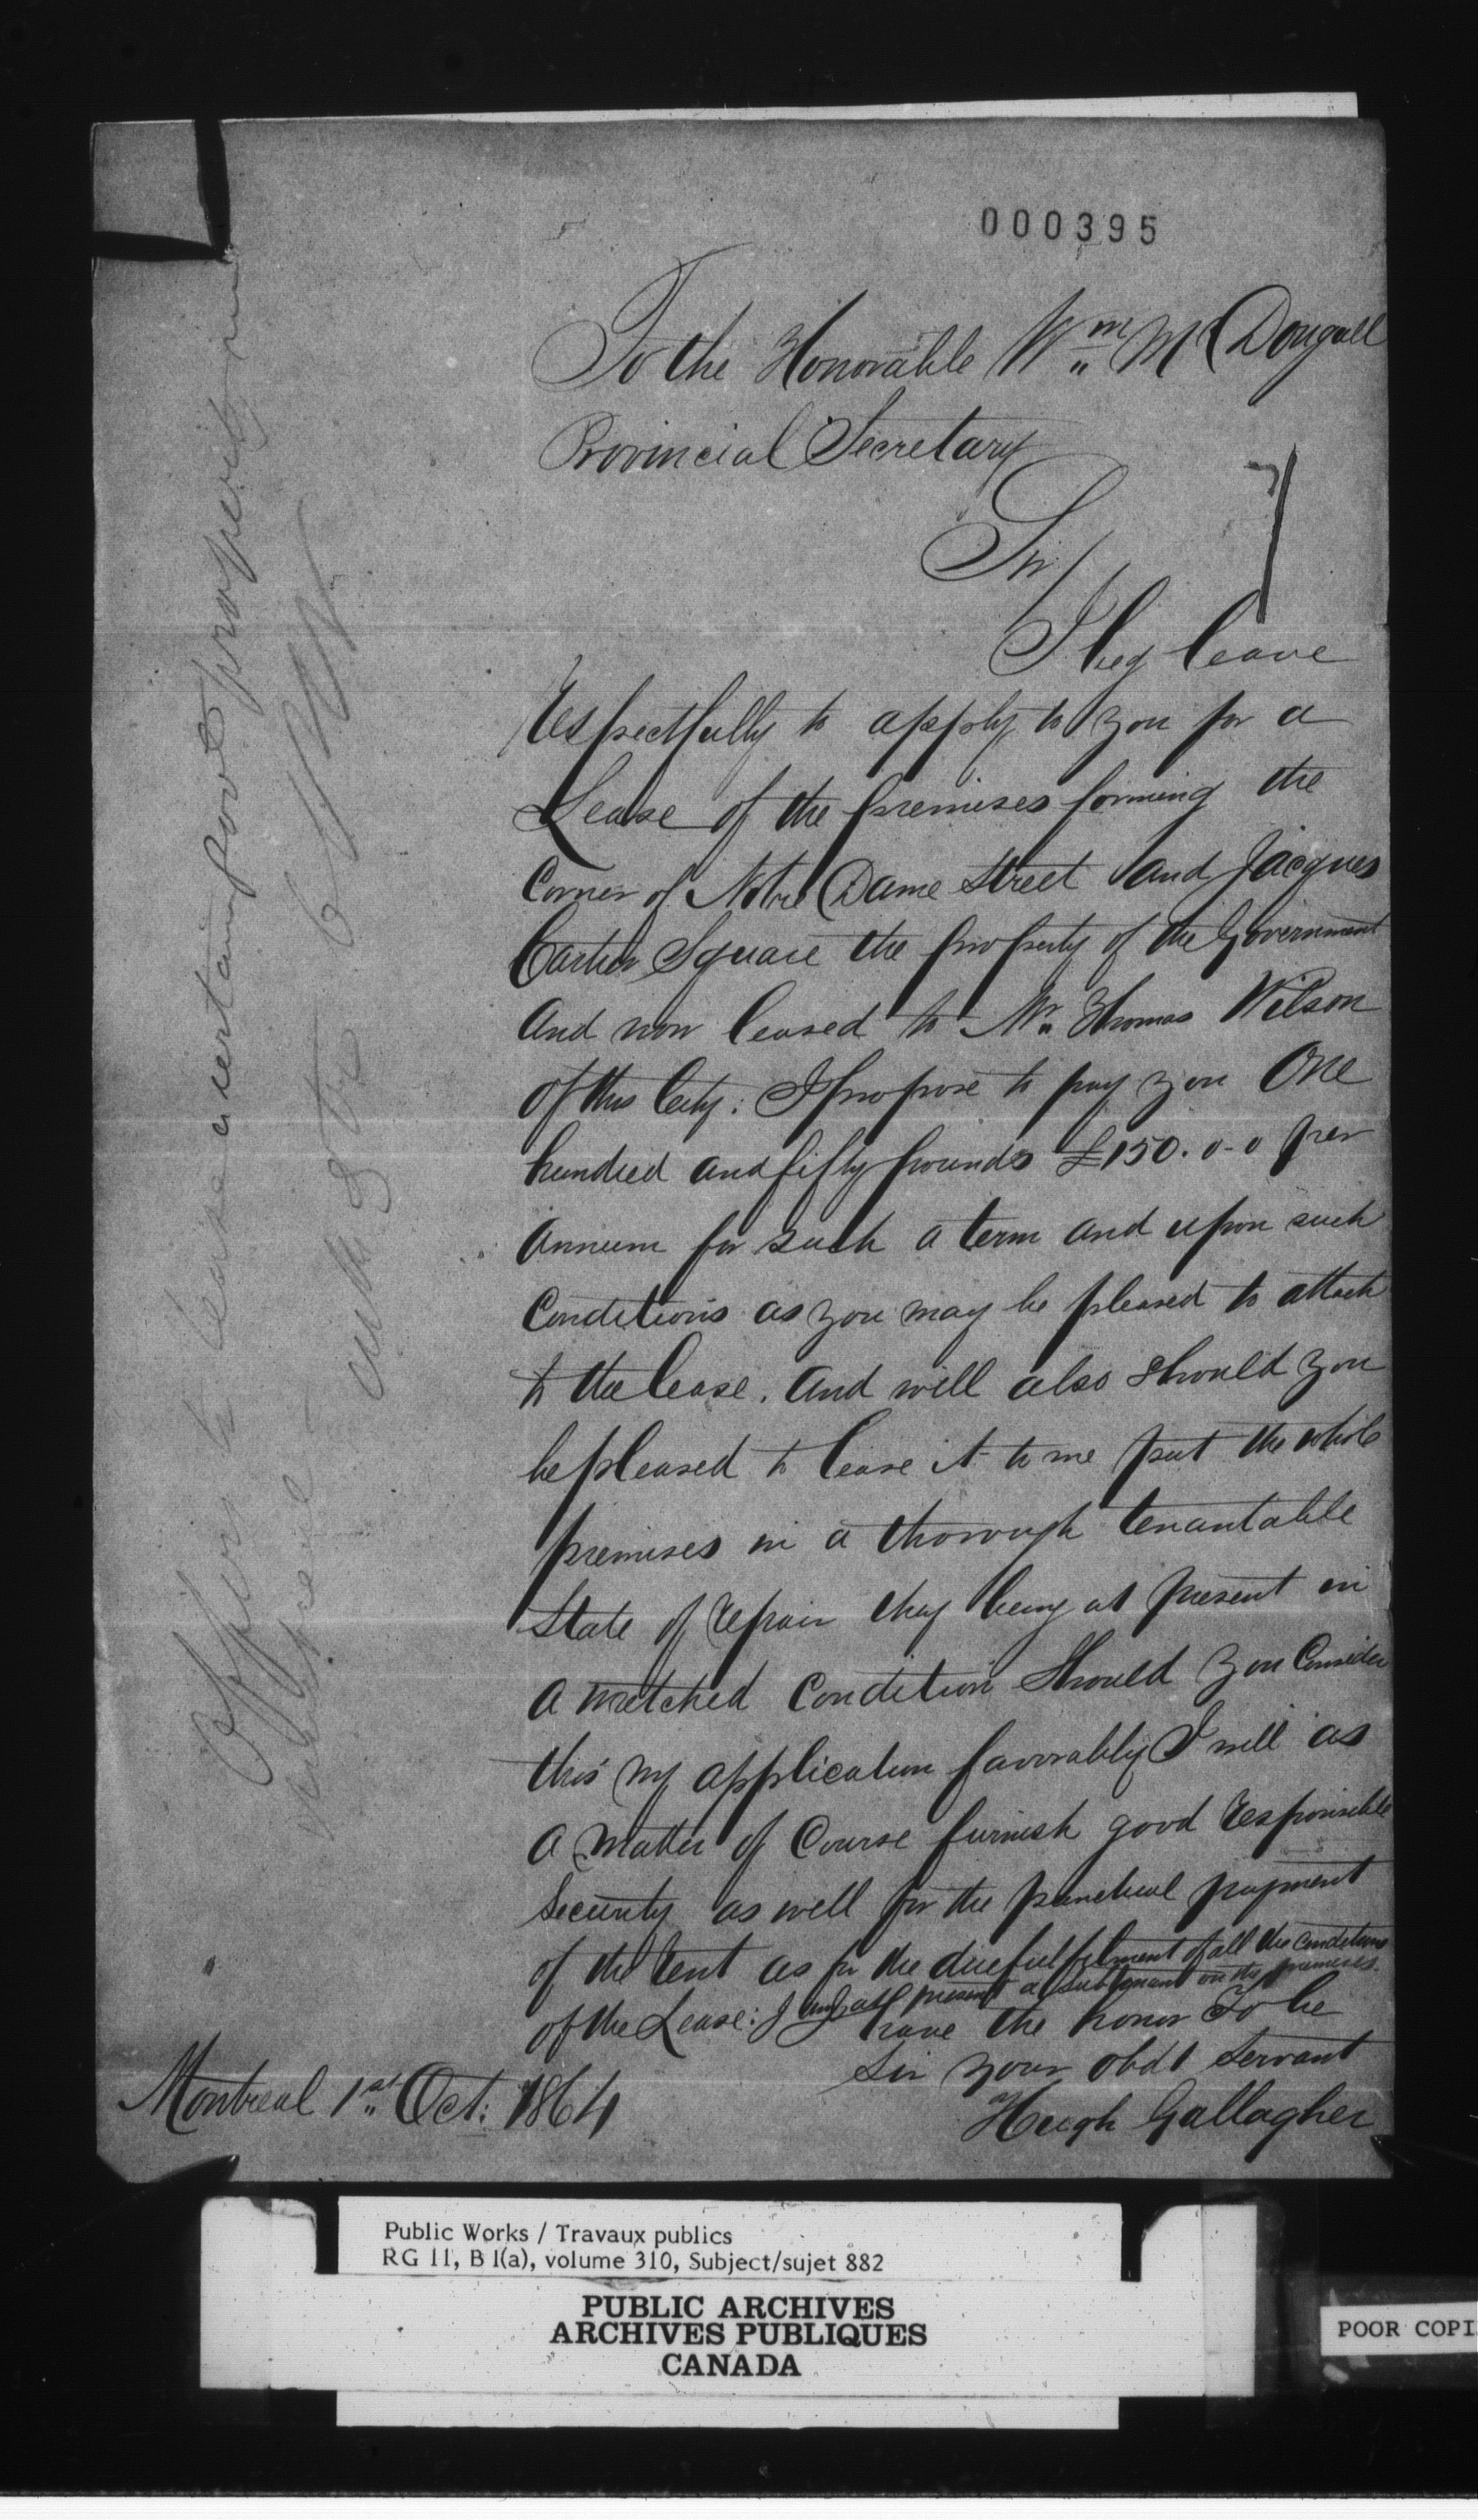 000395
To the Honorable Wm McDougall
Provincial Secretary
Sir/
I beg leave
respectfully to apply to you for a
Lease of the premises forming the
Corner of Notre Dame Street and Jacques
Cartier Square the property of the Government
and now leased to Mr. Thomas Wilson
of this City: I propose to pay you One
hundred and fifty pounds £150. 0-0 per
annum for such a term and upon such
Conditions as you may be pleased to attach
to the lease. and will also should you
be pleased to lease it to me put the whole
premises in a thorough tenantable
State of repair they being at present in
a wretched Condition Should you Consider
this my application favorably I will as
a matter of Course furnish good responsible
Security as well for the punctual payment
of the rent as for the due fulfilment of all the conditions
of the Lease: I am at present a subtenant on the premises.
have the honor To be
Sir your obdt Servant
Hugh Gallagher
Montreal 1st Oct: 1864
Offers to lease a certain Govt property in
Public Works / Travaux publics
RG 11, B 1(a), volume 310, Subject/sujet 882
PUBLIC ARCHIVES
ARCHIVES PUBLIQUES
CANADA
POOR COPI